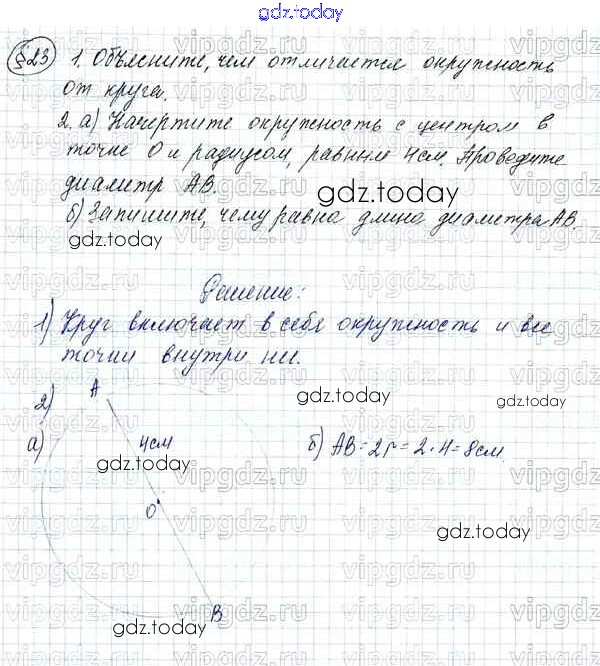 gdz.today
§23 1. Объясните, чем отличается окружность
от круга.
2. а) Начертите окружность с центром в
точке О и радиусом, равным 4см. Проведите
диаметр АВ.
gdz.today
б) Запишите, чему равна длина диаметра АВ.
gdz.today
Решение:
1) Круг включает в себя окружность и все
точки внутри неё.
gdz.today
gdz.today
2) А
а) 4см
б) АВ = 2r = 2 · 4 = 8см.
gdz.today
О
gdz.today
В
gdz.today